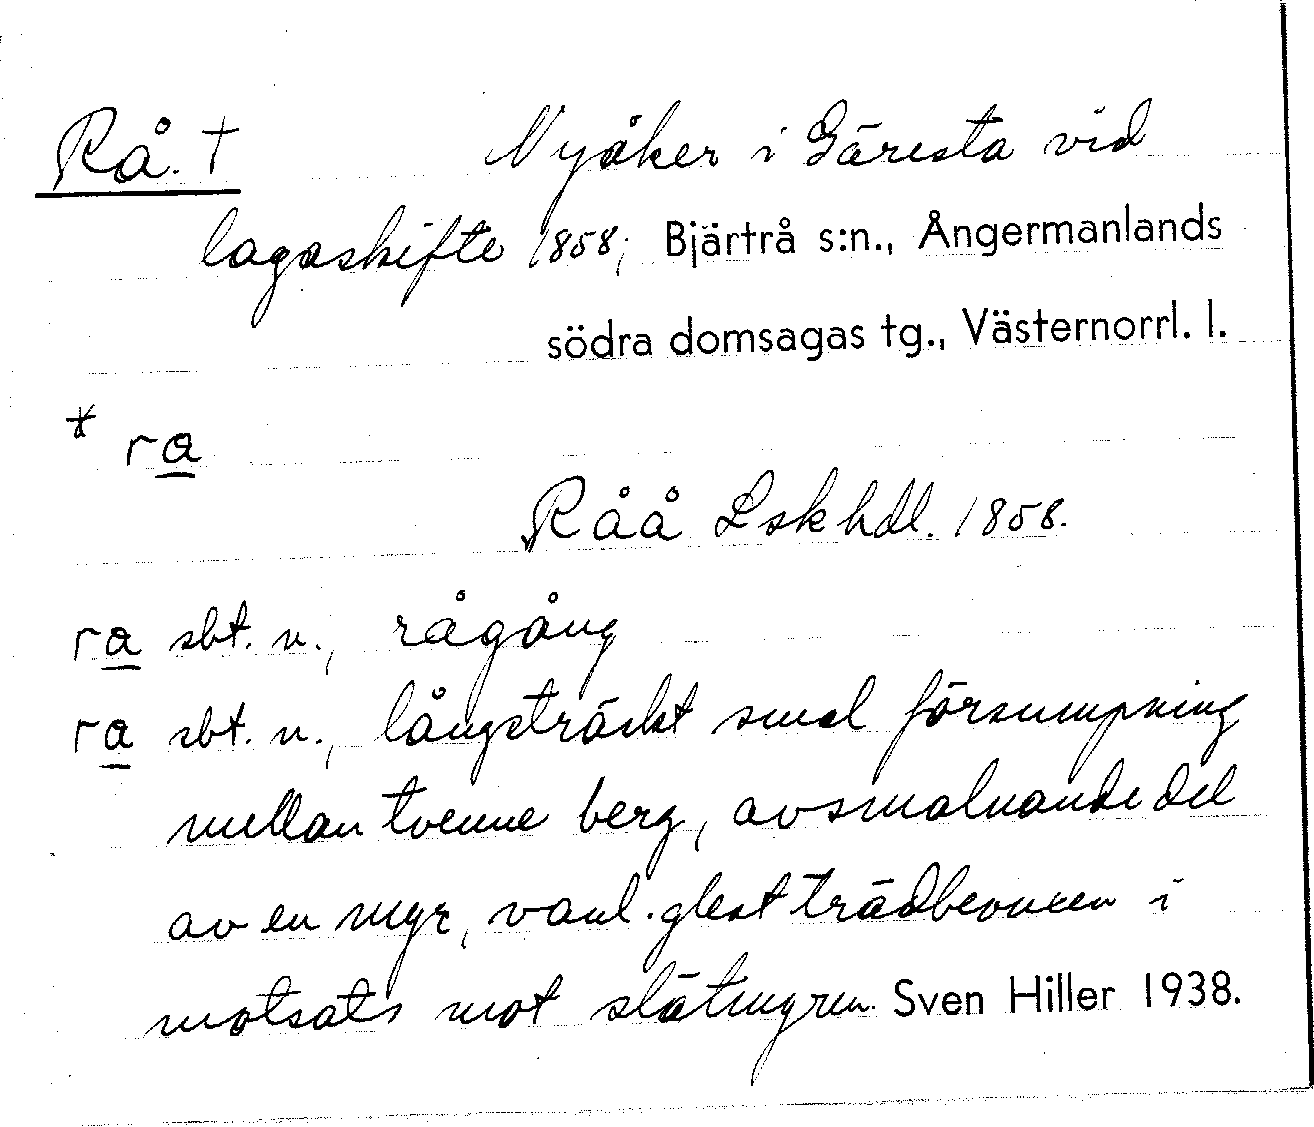 Rå. † Nyåker i Gäresta vid
lagaskifte 1858; Bjärtrå s:n., Ångermanlands
södra domsagas tg., Västernorrl. l.
* ra̲
Råå Lskhdl. 1858.
ra̲ sbt. n., rågång
ra̲ sbt. n., långsträckt smal försumpning
mellan tvenne berg, avsmalnande del
av en myr, vanl. glest trädbevuxen i
motsats mot slåtmyren. Sven Hiller 1938.